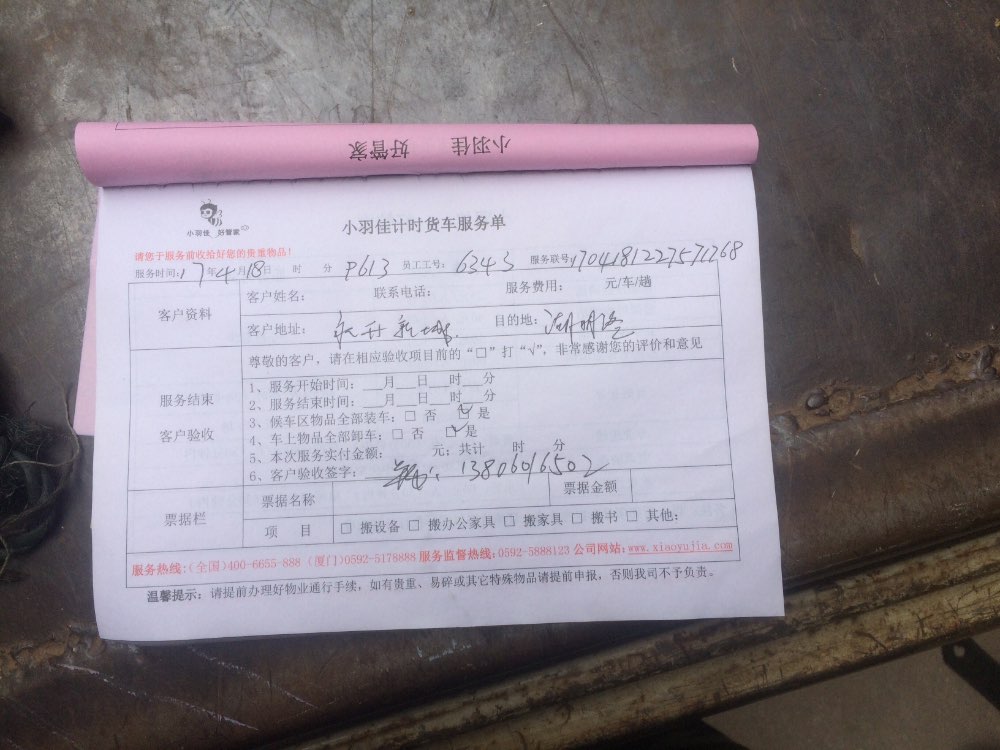 小羽佳 好管家
小羽佳 好管家
小羽佳计时货车服务单
请您于服务前收拾好您的贵重物品!
服务时间: 17年4月18日 时 分 P613 员工工号: 6343 服务联号:
客户资料
客户姓名: 联系电话: 服务费用: 元/车/趟
客户地址: 永升新城 目的地: 湖明路
服务结束
客户验收
尊敬的客户,请在相应验收项目前的“□”打“√”,非常感谢您的评价和意见
1、服务开始时间:___月___日___时___分
2、服务结束时间:___月___日___时___分
3、候车区物品全部装车: □ 否 ☑ 是
4、车上物品全部卸车: □ 否 ☑ 是
5、本次服务实付金额: 元; 共计 时 分
6、客户验收签字: 13806016502
票据栏
票据名称 票据金额
项 目 □ 搬设备 □ 搬办公家具 □ 搬家具 □ 搬书 □ 其他:
服务热线:(全国)400-6655-888 (厦门)0592-5178888 服务监督热线:0592-5888123 公司网站:www.xiaoyujia.com
温馨提示:请提前办理好物业通行手续,如有贵重、易碎或其它特殊物品请提前申报,否则我司不予负责。